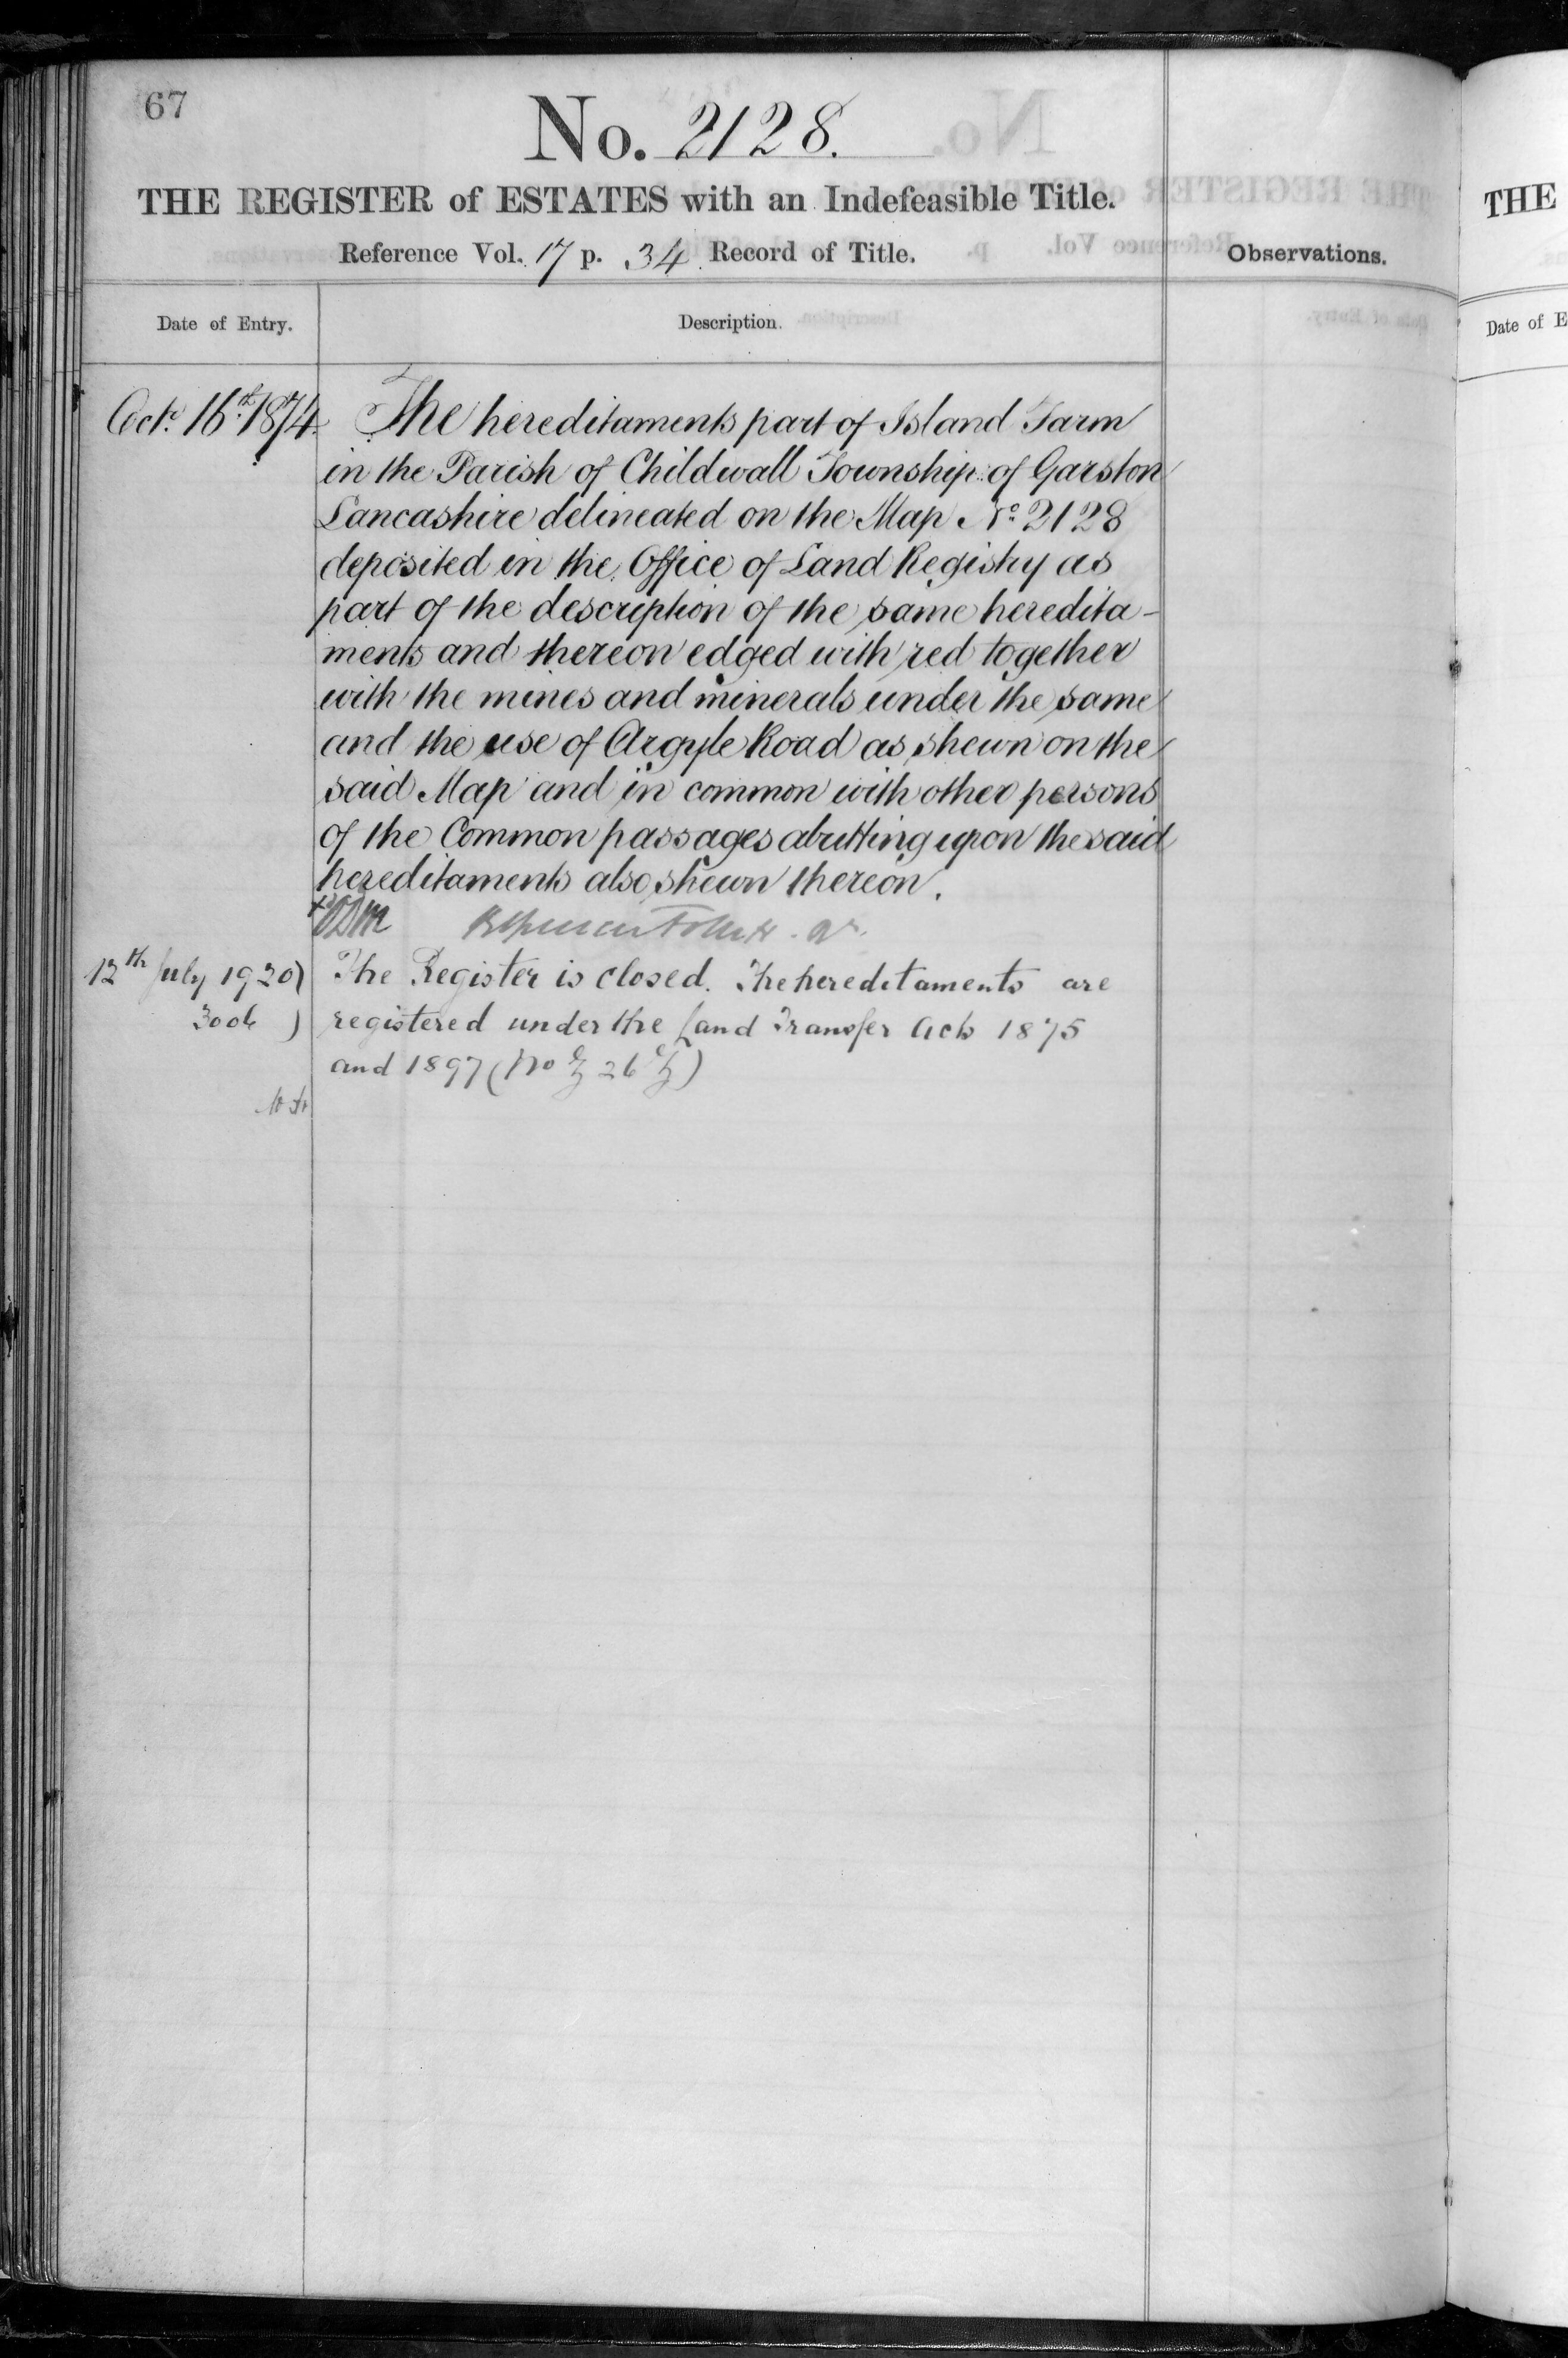 67
No. 2128.
THE REGISTER of ESTATES with an Indefeasible Title.
Reference Vol. 17 p. 34 Record of Title.
Observations.
Date of Entry.
Description.
Octr. 16th 1874.
The hereditaments part of Island Farm
in the Parish of Childwall Township of Garston
Lancashire delineated on the Map No. 2128
deposited in the Office of Land Registry as
part of the description of the same heredita-
ments and thereon edged with red together
with the mines and minerals under the same
and the use of Argyle Road as shewn on the
said Map and in common with other persons
of the Common passages abutting upon the said
hereditaments also shewn thereon.
12th July 1920)
The Register is closed. The hereditaments are
registered under the Land Transfer Acts 1875
and 1897 (No
THE
Date of E